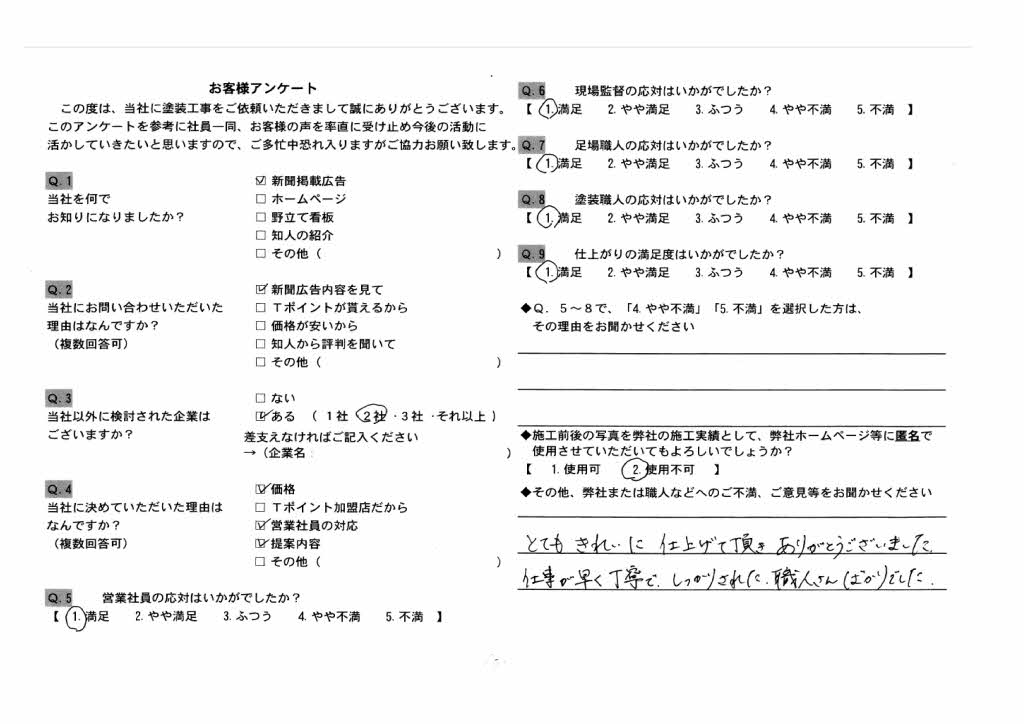 お客様アンケート
この度は、当社に塗装工事をご依頼いただきまして誠にありがとうございます。
このアンケートを参考に社員一同、お客様の声を率直に受け止め今後の活動に
活かしていきたいと思いますので、ご多忙中恐れ入りますがご協力お願い致します。
Q.1
当社を何で
お知りになりましたか？
☑ 新聞掲載広告
□ ホームページ
□ 野立て看板
□ 知人の紹介
□ その他（ ）
Q.2
当社にお問い合わせいただいた
理由はなんですか？
（複数回答可）
☑ 新聞広告内容を見て
□ Ｔポイントが貰えるから
□ 価格が安いから
□ 知人から評判を聞いて
□ その他（ ）
Q.3
当社以外に検討された企業は
ございますか？
□ ない
☑ ある （ １社・２社・３社・それ以上 ）
差支えなければご記入ください
→（企業名： ）
Q.4
当社に決めていただいた理由は
なんですか？
（複数回答可）
☑ 価格
□ Ｔポイント加盟店だから
☑ 営業社員の対応
☑ 提案内容
□ その他（ ）
Q.5 営業社員の応対はいかがでしたか？
【 1.満足 2.やや満足 3.ふつう 4.やや不満 5.不満 】
Q.6 現場監督の応対はいかがでしたか？
【 1.満足 2.やや満足 3.ふつう 4.やや不満 5.不満 】
Q.7 足場職人の応対はいかがでしたか？
【 1.満足 2.やや満足 3.ふつう 4.やや不満 5.不満 】
Q.8 塗装職人の応対はいかがでしたか？
【 1.満足 2.やや満足 3.ふつう 4.やや不満 5.不満 】
Q.9 仕上がりの満足度はいかがでしたか？
【 1.満足 2.やや満足 3.ふつう 4.やや不満 5.不満 】
◆Ｑ．５～８で、「4.やや不満」「5.不満」を選択した方は、
その理由をお聞かせください
◆施工前後の写真を弊社の施工実績として、弊社ホームページ等に匿名で
使用させていただいてもよろしいでしょうか？
【 1.使用可 2.使用不可 】
◆その他、弊社または職人などへのご不満、ご意見等をお聞かせください
とても きれいに 仕上げて頂き ありがとうございました。
仕事が早く丁寧で、しっかりされた、職人さんばかりでした。